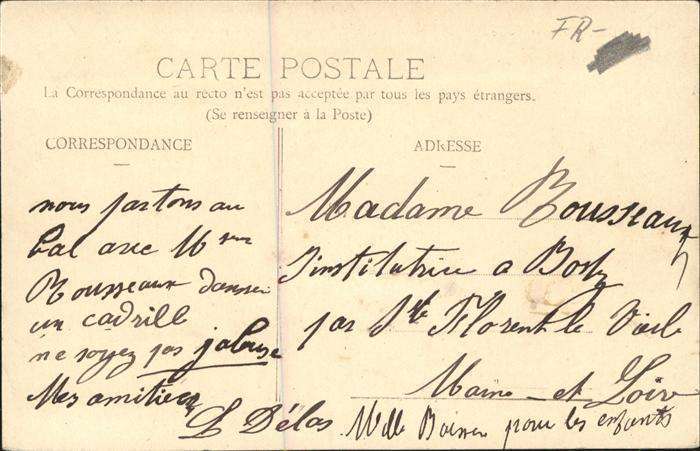 FR-
CARTE POSTALE
La Correspondance au recto n'est pas acceptée par tous les pays étrangers.
(Se renseigner à la Poste)
CORRESPONDANCE
nous partons au
bal avec Msieur
Rousseaux danser
un cadrille
ne soyez pas jalouse
Mes amitiées
L Délas
ADRESSE
Madame Rousseaux
Institutrice a
par St Florent le Vieil
Maine et Loire
Mille Baisers pour les enfants